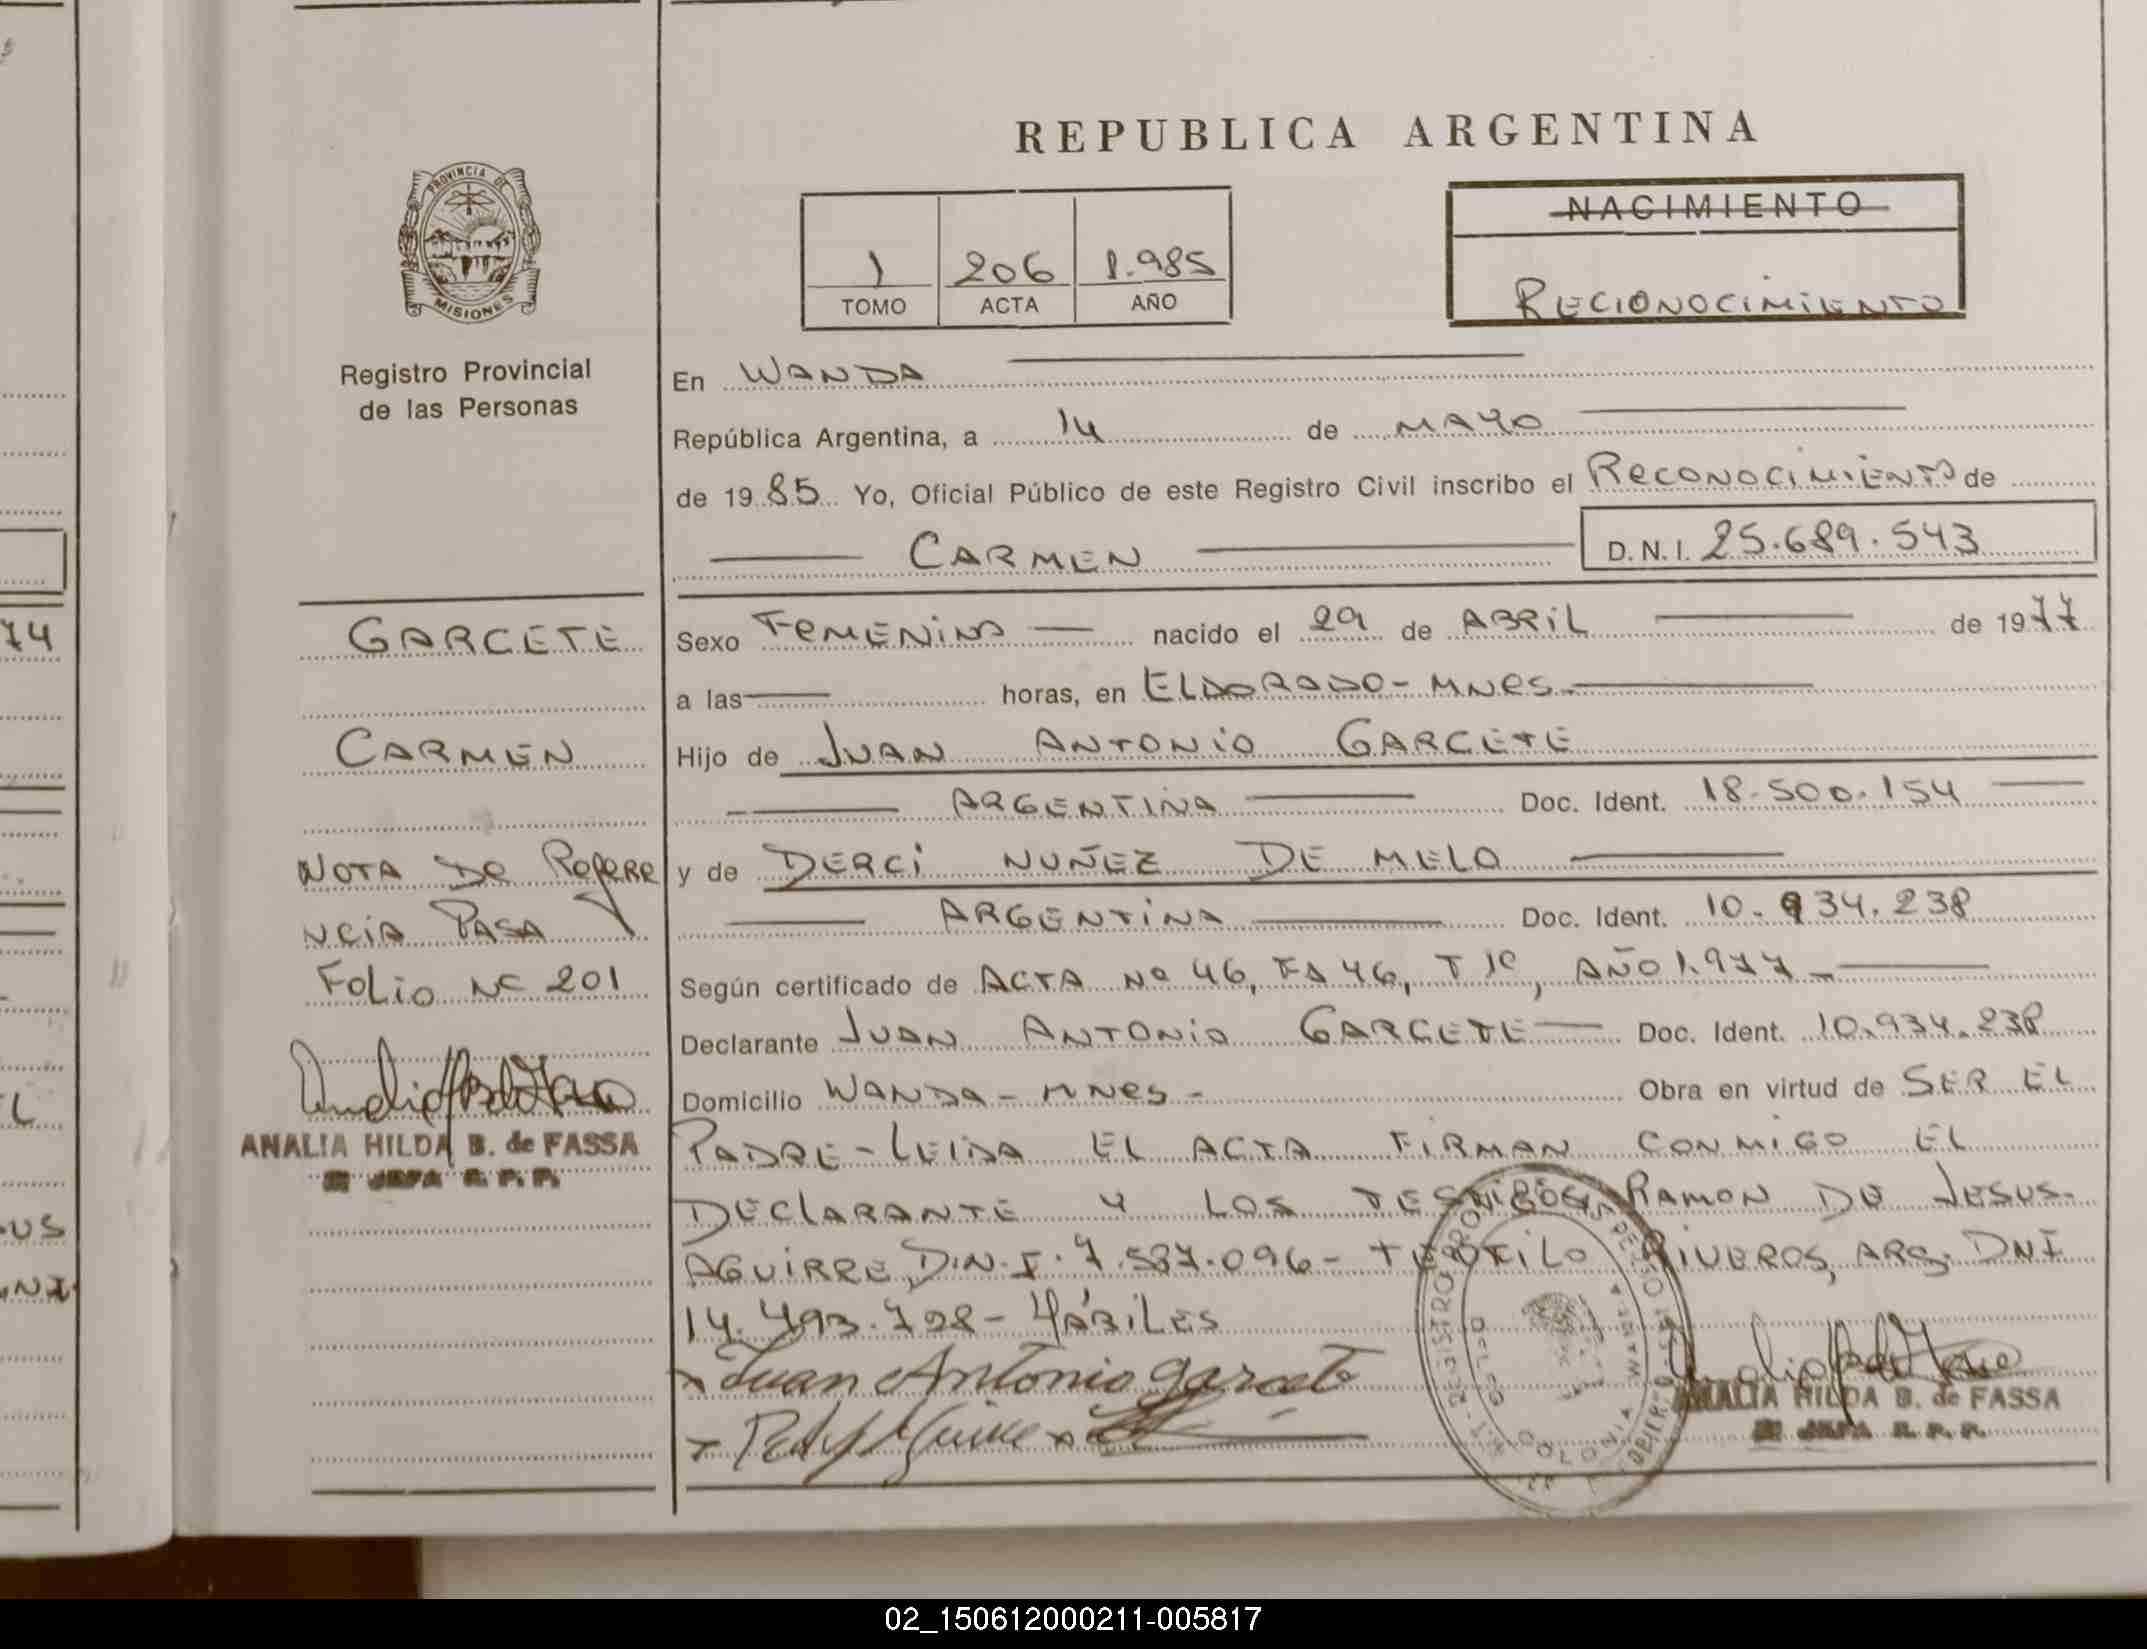 REPUBLICA ARGENTINA
PROVINCIA DE
MISIONES
Registro Provincial
de las Personas
1 206 1.985
TOMO ACTA AÑO
NACIMIENTO
RECIONOCIMIENTO
En WANDA
República Argentina, a 14 de MAYO
de 1985 Yo, Oficial Público de este Registro Civil inscribo el RECONOCIMIENTO de
CARMEN D.N.I. 25.689.543
74
GARCETE
CARMEN
NOTA DE REFERE
NCIA PASA
FOLIO Nº 201
ANALIA HILDA B. de FASSA
JEFA R. P. P.
Sexo FEMENINO nacido el 29 de ABRIL de 1977
a las horas, en ELDORADO - MNES.
Hijo de JUAN ANTONIO GARCETE
ARGENTINA Doc. Ident. 18.500.154
y de DERCI NUÑEZ DE MELO
ARGENTINA Doc. Ident. 10.934.238
Según certificado de ACTA Nº 46, Fº 46, T 1º, AÑO 1.977
Declarante JUAN ANTONIO GARCETE Doc. Ident. 10.934.238
Domicilio WANDA - MNES - Obra en virtud de SER EL
PADRE - LEIDA EL ACTA FIRMAN CONMIGO EL
DECLARANTE Y LOS TESTIGOS RAMON DE JESUS
AGUIRRE, D.N.I. 7.587.096 - TEOFILO RIVEROS, ARG. DNI
14.493.728 - HÁBILES
Juan Antonio Garcete
ANALIA HILDA B. de FASSA
JEFA R. P. P.
02_150612000211-005817